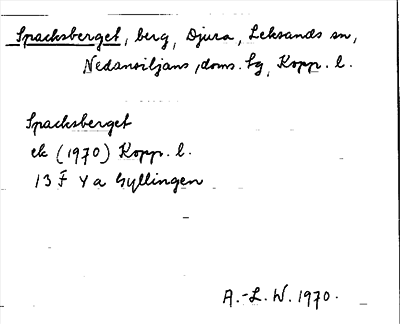 Spacksberget, berg, Djura, Leksands sn,
Nedansiljans, doms. hg, Kopp. l.
Spacksberget
ek (1970) Kopp. l.
13 F 4 a Gyllingen
A.-L. W. 1970.